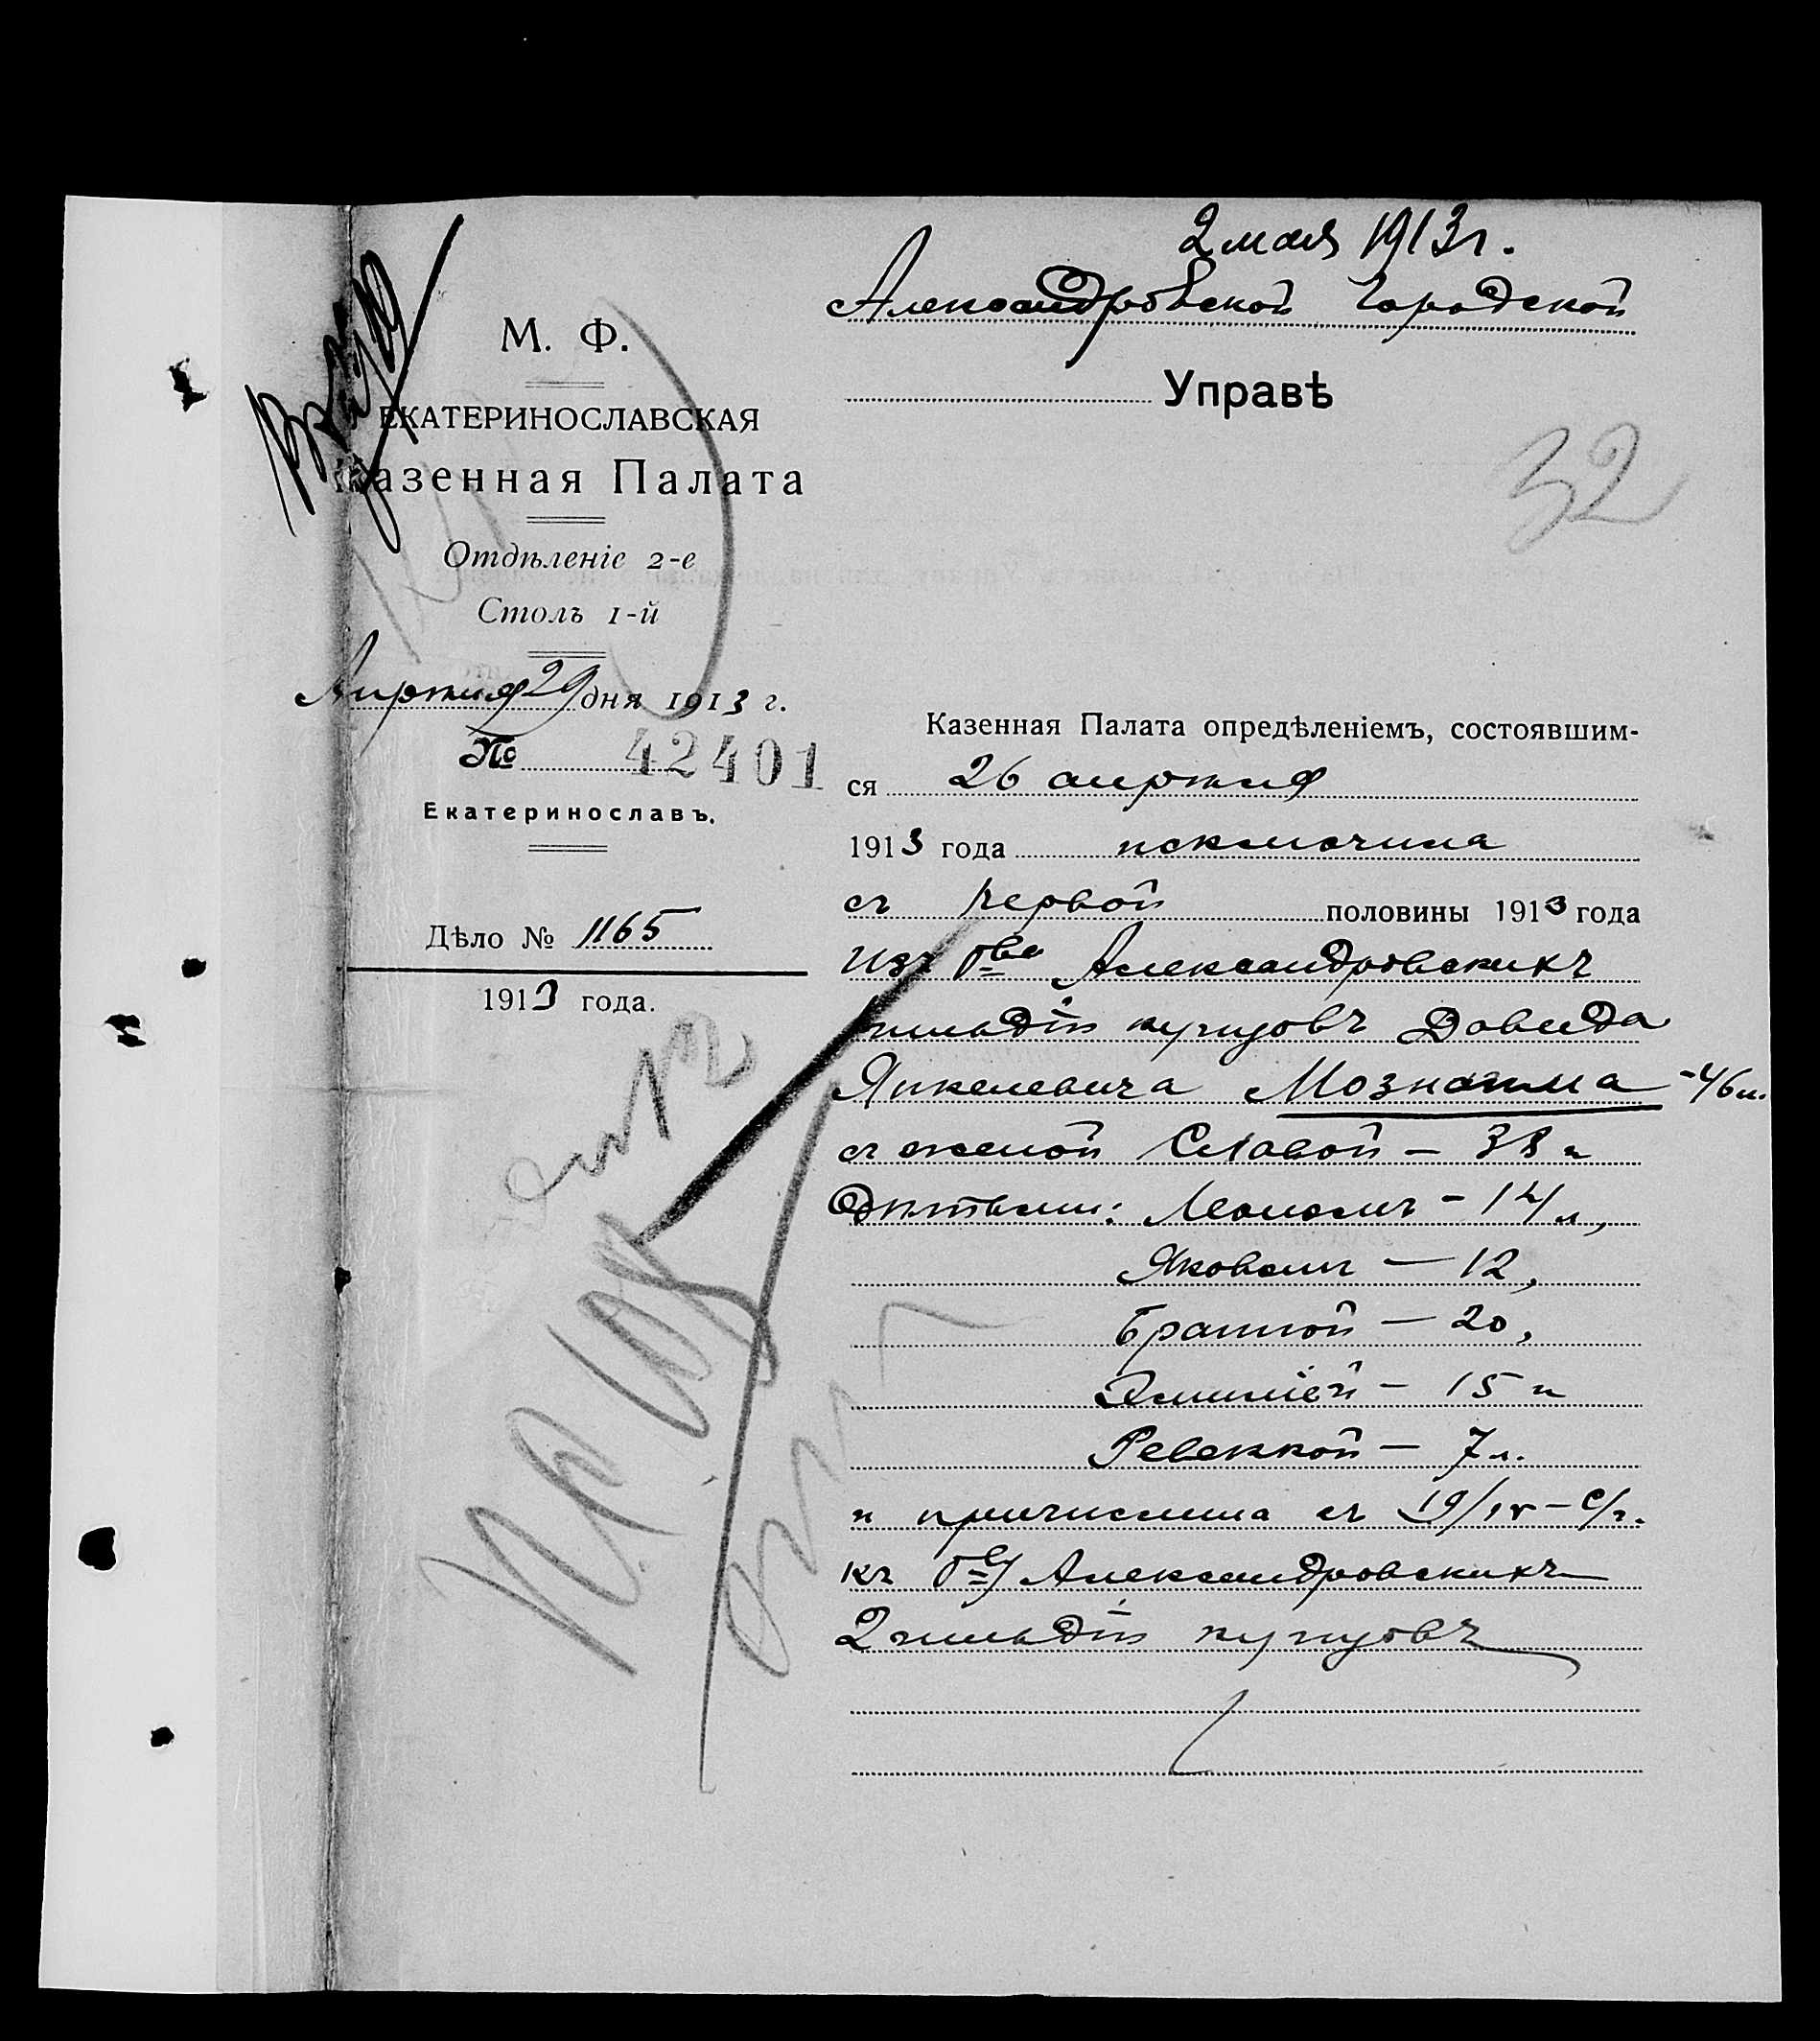 2 мая 1913 г.
Александровской Городской
Управѣ
32
М. Ф.
ЕКАТЕРИНОСЛАВСКАЯ
Казенная Палата
Отдѣленіе 2-е
Столъ 1-й
Апрѣля 29 дня 1913 г.
№ 42401
Екатеринославъ.
Дѣло № 1165
1913 года.
Казенная Палата опредѣленіемъ, состоявшим-
ся 26 апрѣля
1913 года исключила
съ первой половины 1913 года
изъ о-ва Александровскихъ
гильдіи купцовъ Давида
Янкелевича - 46 л.
съ женой Славой - 38 л
дѣтьми: - 14 л,
Яковомъ - 12,
- 20,
Эмиліей - 15 л
Ревеккой - 7 л.
и причислила съ 19/IV - с/г.
къ о-ву Александровскихъ
2 гильдіи купцовъ